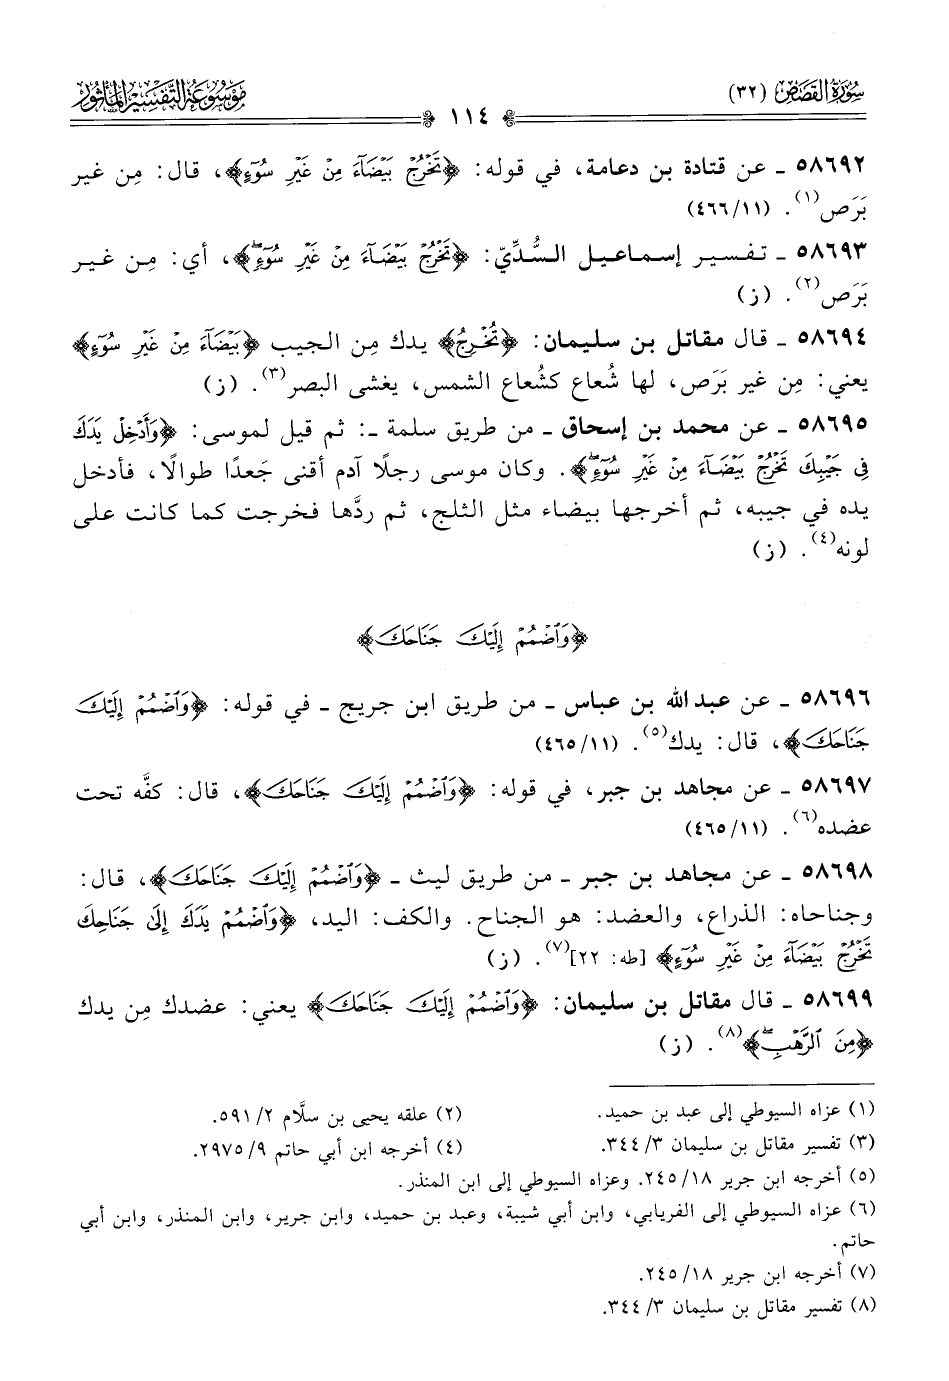 سُورَةُ القَصَصِ (٣٢)
مَوْسُوعَةُ التَّفْسِيرِ المَأْثُورِ
١١٤
٥٨٦٩٢ ـ عن قتادة بن دعامة، في قوله: ﴿تَخْرُجْ بَيْضَآءَ مِنْ غَيْرِ سُوٓءٍ﴾، قال: مِن غير
بَرَص(١). (١١/ ٤٦٦)
٥٨٦٩٣ ـ تفسير إسماعيل السُّدِّيّ: ﴿تَخْرُجْ بَيْضَآءَ مِنْ غَيْرِ سُوٓءٍۖ﴾، أي: مِن غير
بَرَص(٢). (ز)
٥٨٦٩٤ ـ قال مقاتل بن سليمان: ﴿تَخْرُجْ﴾ يدك مِن الجيب ﴿بَيْضَآءَ مِنْ غَيْرِ سُوٓءٍ﴾
يعني: مِن غير بَرَص، لها شُعاع كشُعاع الشمس، يغشى البصر(٣). (ز)
٥٨٦٩٥ ـ عن محمد بن إسحاق ـ من طريق سلمة ـ: ثم قيل لموسى: ﴿وَأَدْخِلْ يَدَكَ
فِى جَيْبِكَ تَخْرُجْ بَيْضَآءَ مِنْ غَيْرِ سُوٓءٍۖ﴾. وكان موسى رجلًا آدم أقنى جَعدًا طوالًا، فأدخل
يده في جيبه، ثم أخرجها بيضاء مثل الثلج، ثم ردَّها فخرجت كما كانت على
لونه(٤). (ز)
﴿وَٱضْمُمْ إِلَيْكَ جَنَاحَكَ﴾
٥٨٦٩٦ ـ عن عبد الله بن عباس ـ من طريق ابن جريج ـ في قوله: ﴿وَٱضْمُمْ إِلَيْكَ
جَنَاحَكَ﴾، قال: يدك(٥). (١١/ ٤٦٥)
٥٨٦٩٧ ـ عن مجاهد بن جبر، في قوله: ﴿وَٱضْمُمْ إِلَيْكَ جَنَاحَكَ﴾، قال: كفَّه تحت
عضده(٦). (١١/ ٤٦٥)
٥٨٦٩٨ ـ عن مجاهد بن جبر ـ من طريق ليث ـ ﴿وَٱضْمُمْ إِلَيْكَ جَنَاحَكَ﴾، قال:
وجناحاه: الذراع، والعضد: هو الجناح. والكف: اليد، ﴿وَٱضْمُمْ يَدَكَ إِلَىٰ جَنَاحِكَ
تَخْرُجْ بَيْضَآءَ مِنْ غَيْرِ سُوٓءٍ﴾ [طه: ٢٢](٧). (ز)
٥٨٦٩٩ ـ قال مقاتل بن سليمان: ﴿وَٱضْمُمْ إِلَيْكَ جَنَاحَكَ﴾ يعني: عضدك مِن يدك
﴿مِنَ ٱلرَّهْبِۖ﴾(٨). (ز)
(١) عزاه السيوطي إلى عبد بن حميد.
(٢) علقه يحيى بن سلَّام ٢/ ٥٩١.
(٣) تفسير مقاتل بن سليمان ٣/ ٣٤٤.
(٤) أخرجه ابن أبي حاتم ٩/ ٢٩٧٥.
(٥) أخرجه ابن جرير ١٨/ ٢٤٥. وعزاه السيوطي إلى ابن المنذر.
(٦) عزاه السيوطي إلى الفريابي، وابن أبي شيبة، وعبد بن حميد، وابن جرير، وابن المنذر، وابن أبي
حاتم.
(٧) أخرجه ابن جرير ١٨/ ٢٤٥.
(٨) تفسير مقاتل بن سليمان ٣/ ٣٤٤.